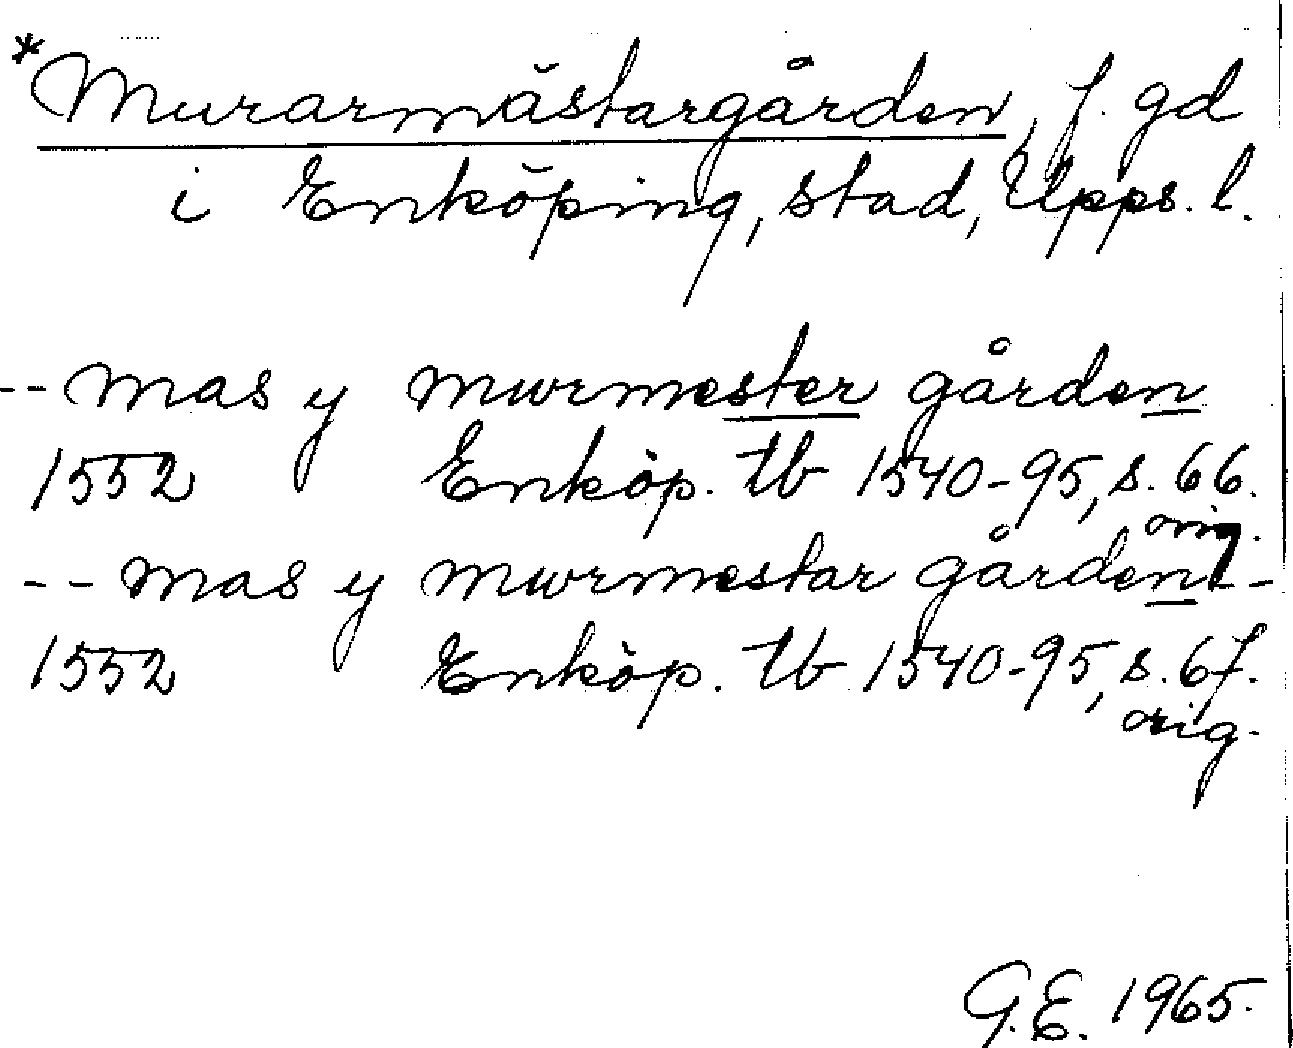 *Murarmästargården, f. gd
i Enköping, stad, Upps. l.
-- mas y murmester gården
1552 Enköp. tb 1540-95, s. 66.
orig.
-- mas y murmestar gården --
1552 Enköp. tb 1540-95, s. 67.
orig.
G.E. 1965.